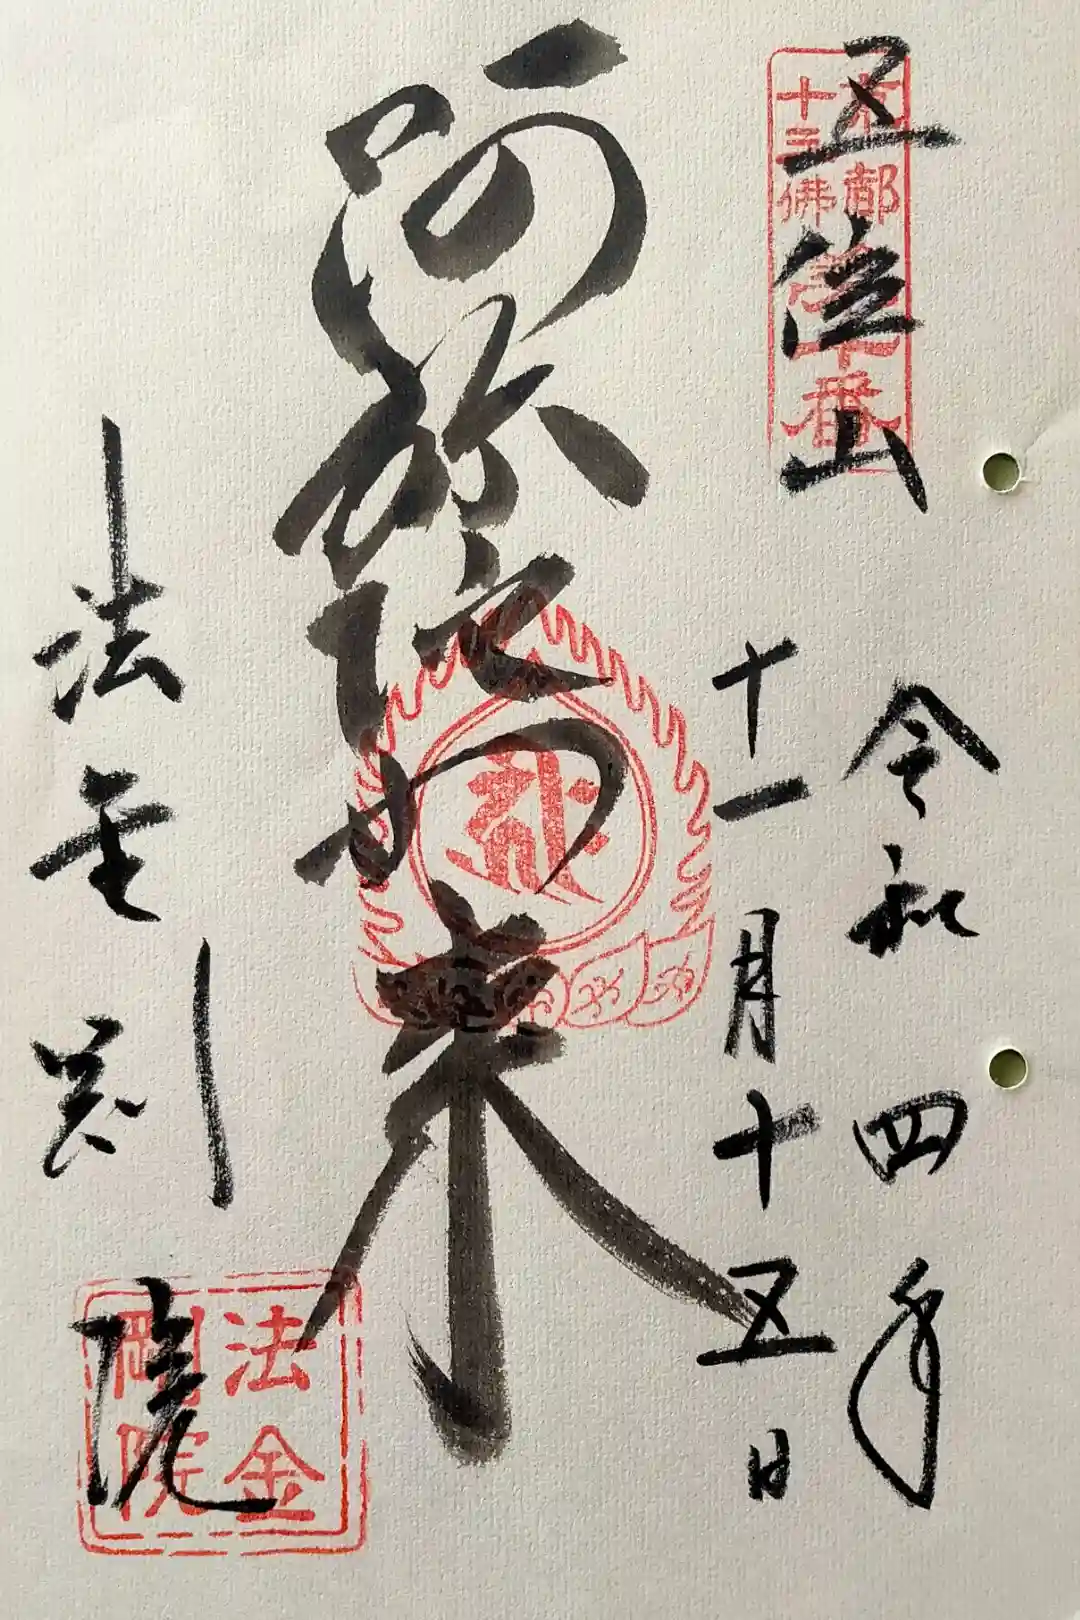 五位山
京都
十三佛
第十番
令和四年
十一月十五日
阿弥陀如来
法金剛院
法金
剛院